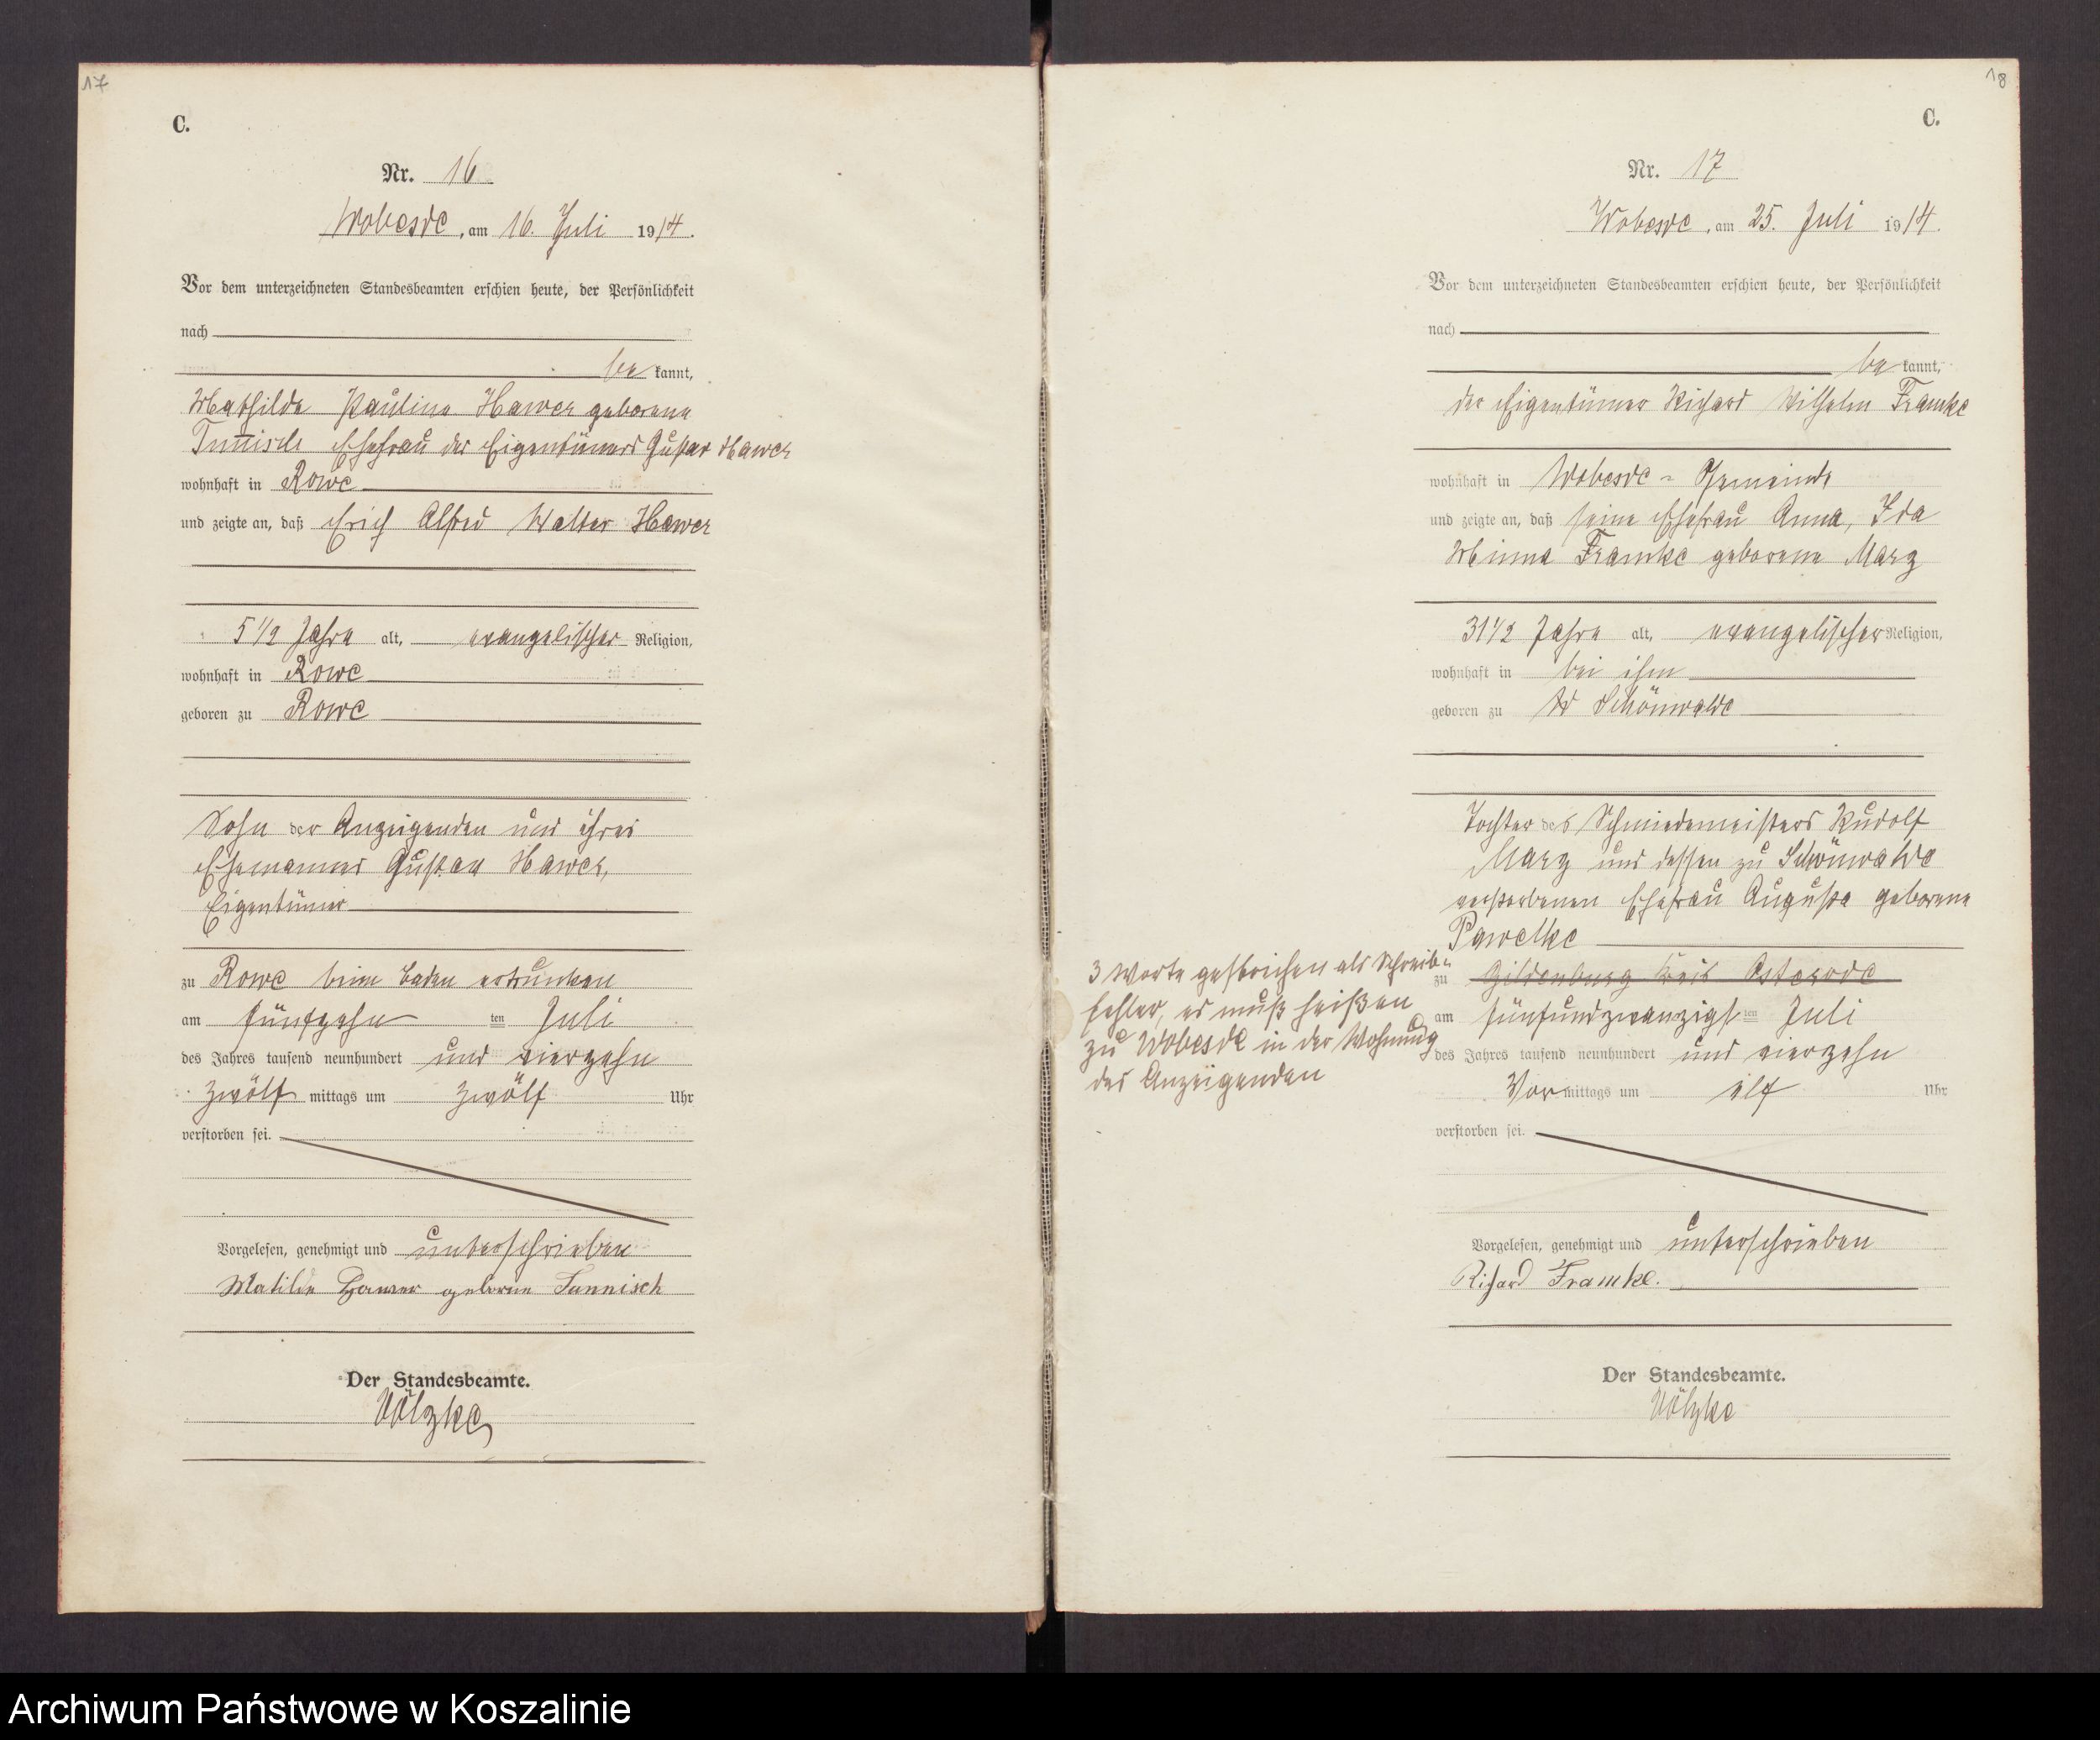 17
C.
Nr. 16
Wobesde, am 16. Juli 1914.
Vor dem unterzeichneten Standesbeamten erschien heute, der Persönlichkeit
nach
be kannt,
Mathilde Pauline Hawer geborene
Tun̅isch Ehefrau des Eigentümers Gustav Hawer
wohnhaft in Rowe
und zeigte an, daß Erich Alfred Walter Hawer
5 1/2 Jahre alt, evangelischer Religion,
wohnhaft in Rowe
geboren zu Rowe
Sohn der Anzeigenden und ihres
Ehemannes Gustav Hawer,
Eigentümer
zu Rowe beim Baden ertrunken
am fünfzehn ten Juli
des Jahres tausend neunhundert und vierzehn
Zwölf mittags um zwölf Uhr
verstorben sei.
Vorgelesen, genehmigt und unterschrieben
Matilde Hawer geborne Tunnisch
Der Standesbeamte.
Völzke
18
C.
Nr. 17
Wobesde, am 25. Juli 1914.
Vor dem unterzeichneten Standesbeamten erschien heute, der Persönlichkeit
nach
be kannt,
der Eigentümer Richard Wilhelm Framke
wohnhaft in Wobesde - Gemeinde
und zeigte an, daß seine Ehefrau Anna, Ida
Minna Framke geborene Marz
31 1/2 Jahre alt, evangelischer Religion,
wohnhaft in bei ihm
geboren zu Schönwalde
Tochter des Schmiedemeisters Rudolf
Marz und dessen zu Schönwalde
verstorbenen Ehefrau Auguste geborene
Pawelke
zu Gildenburg Kreis Osterode
am fünfundzwanzigst ten Juli
des Jahres tausend neunhundert und vierzehn
Vor mittags um elf Uhr
verstorben sei.
3 Worte gestrichen als Schreib-
fehler, es muß heißen
zu Wobesde in der Wohnung
des Anzeigenden
Vorgelesen, genehmigt und unterschrieben
Richard Framke.
Der Standesbeamte.
Völzke
Archiwum Państwowe w Koszalinie